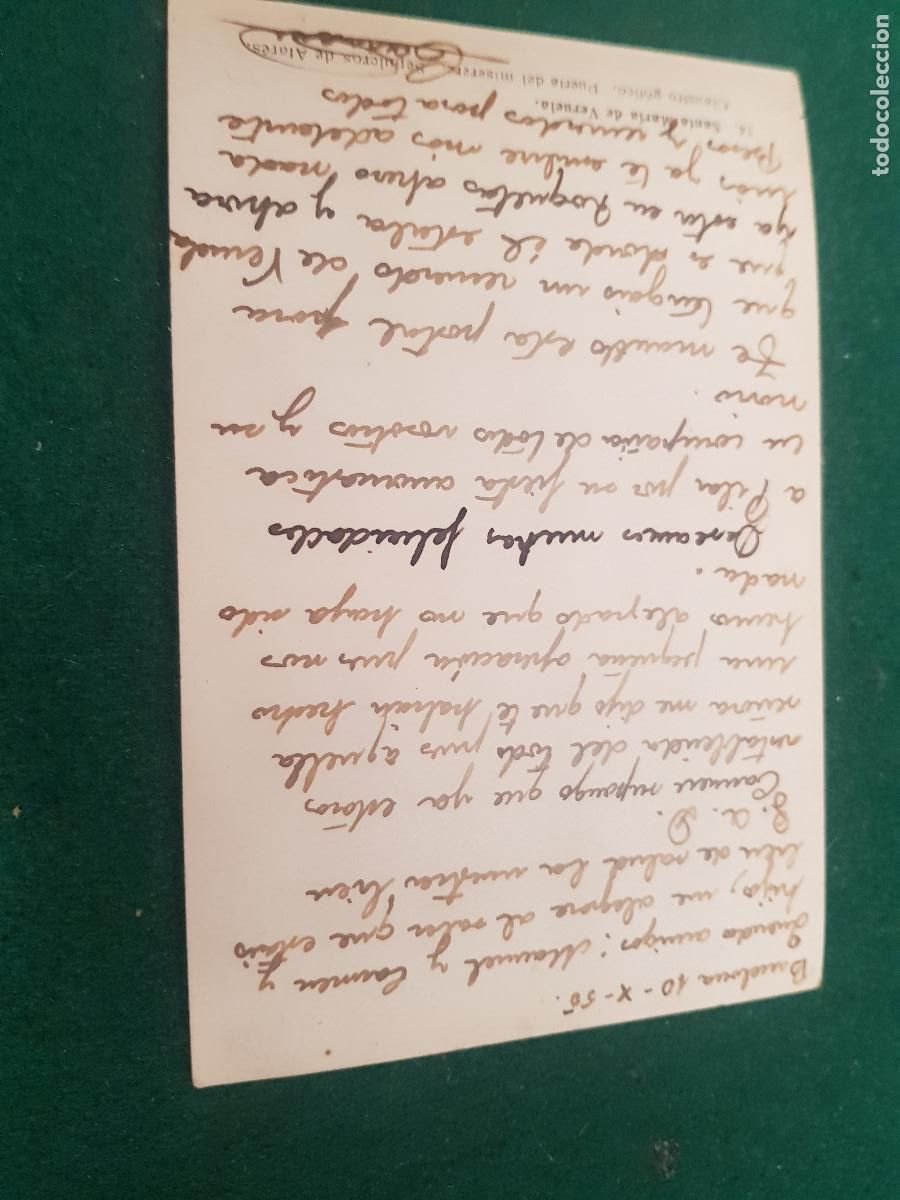 Barcelona 10-X-55.
Querido amigos: Manuel y Carmen y
hijo, me alegrare al saber que estais
bien de salud la nuestra bien
g. a. D.
Carmen supongo que ya estaras
restablecida del todo pues aquella
señora me dijo que te habian hecho
una pequeña operación pues nos
hemos alegrado que no haya sido
nada.
Deseamos muchas felicidades
a Pilar por su fiesta onomastica
en compañia de todos vosotros y su
novio.
Te mando esta postal para
que tengais un recuerdo de Veruela
que es donde él estaba y ahora
ya esta en Roquetas ahora nada
mas ya te escribire mas adelante
Besos y recuerdos para todos
14. Santa María de Veruela.
Claustro gótico. Puerta del miserere.
Sepulcros de Atarés.
todocoleccion